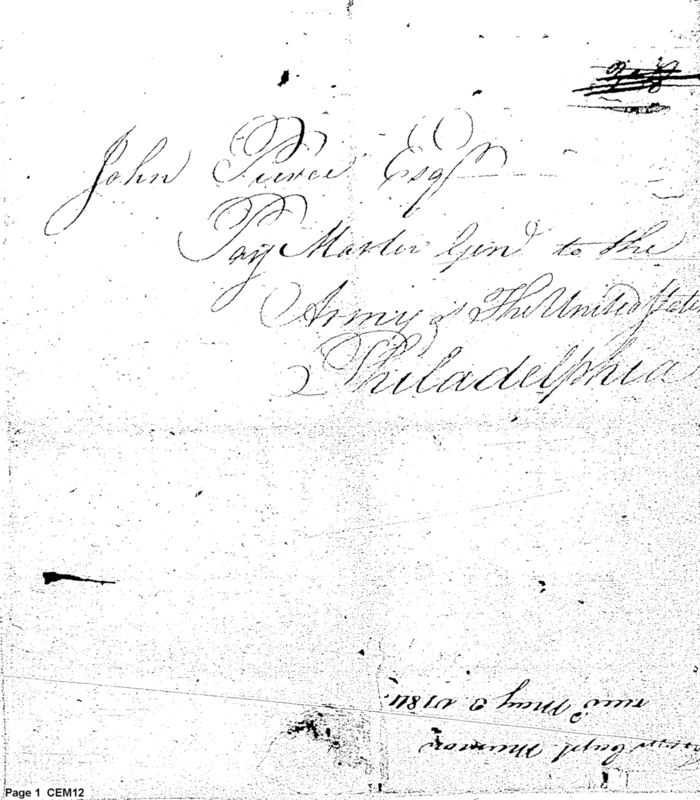 John Pierce Esqr
Pay Master Genl to the
Army of The United States
Philadelphia
Capt Munson
May 2 1784.
Page 1 CEM12